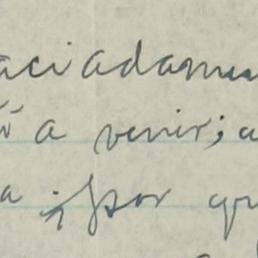 aciadamen
ó a venir; a
a ¿por qu